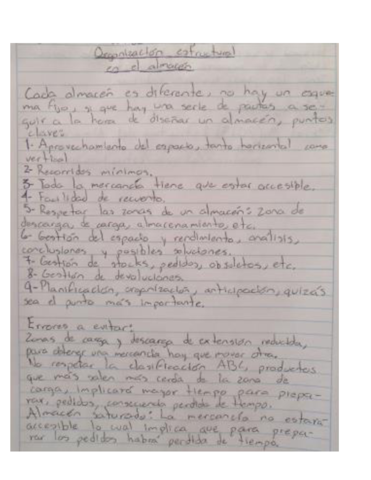 Organización estructural
en el almacén
Cada almacén es diferente, no hay un esque
ma fijo, si que hay una serie de pautas a se-
guir a la hora de diseñar un almacén, puntos
clave:
1- Aprovechamiento del espacio, tanto horizontal como
vertical
2- Recorridos mínimos.
3- Toda la mercancía tiene que estar accesible.
4- Facilidad de recuento.
5- Respetar las zonas de un almacén: Zona de
descarga, de carga, almacenamiento, etc.
6- Gestión del espacio y rendimiento, análisis,
conclusiones y posibles soluciones.
7- Gestión de stocks, pedidos, obsoletos, etc.
8- Gestión de devoluciones.
9- Planificación, organización, anticipación, quizás
sea el punto más importante.
Errores a evitar:
Zonas de carga y descarga de extensión reducida,
para obtener una mercancía hay que mover otra.
No respetar la clasificación ABC, productos
que más salen más cerca de la zona de
carga, implicará mayor tiempo para prepa-
rar pedidos, consecuencia perdida de tiempo.
Almacén saturado: La mercancía no estará
accesible lo cual implica que para prepa-
rar los pedidos habrá perdida de tiempo.